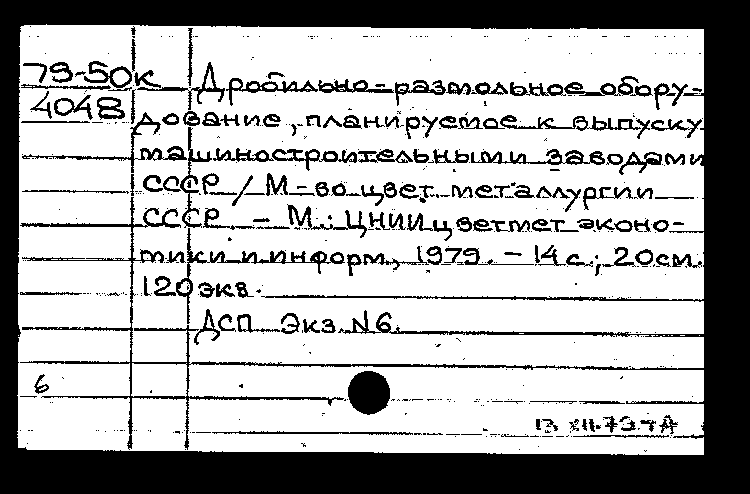 79-50к Дробильно-размольное обору-
4048 дование, планируемое к выпуску
машиностроительными заводами
СССР / М-во цвет. металлургии
СССР. - М.: ЦНИИцветмет эконо-
мики и информ., 1979. - 14 с.; 20см.
120 экз.
ДСП Экз. N6.
6